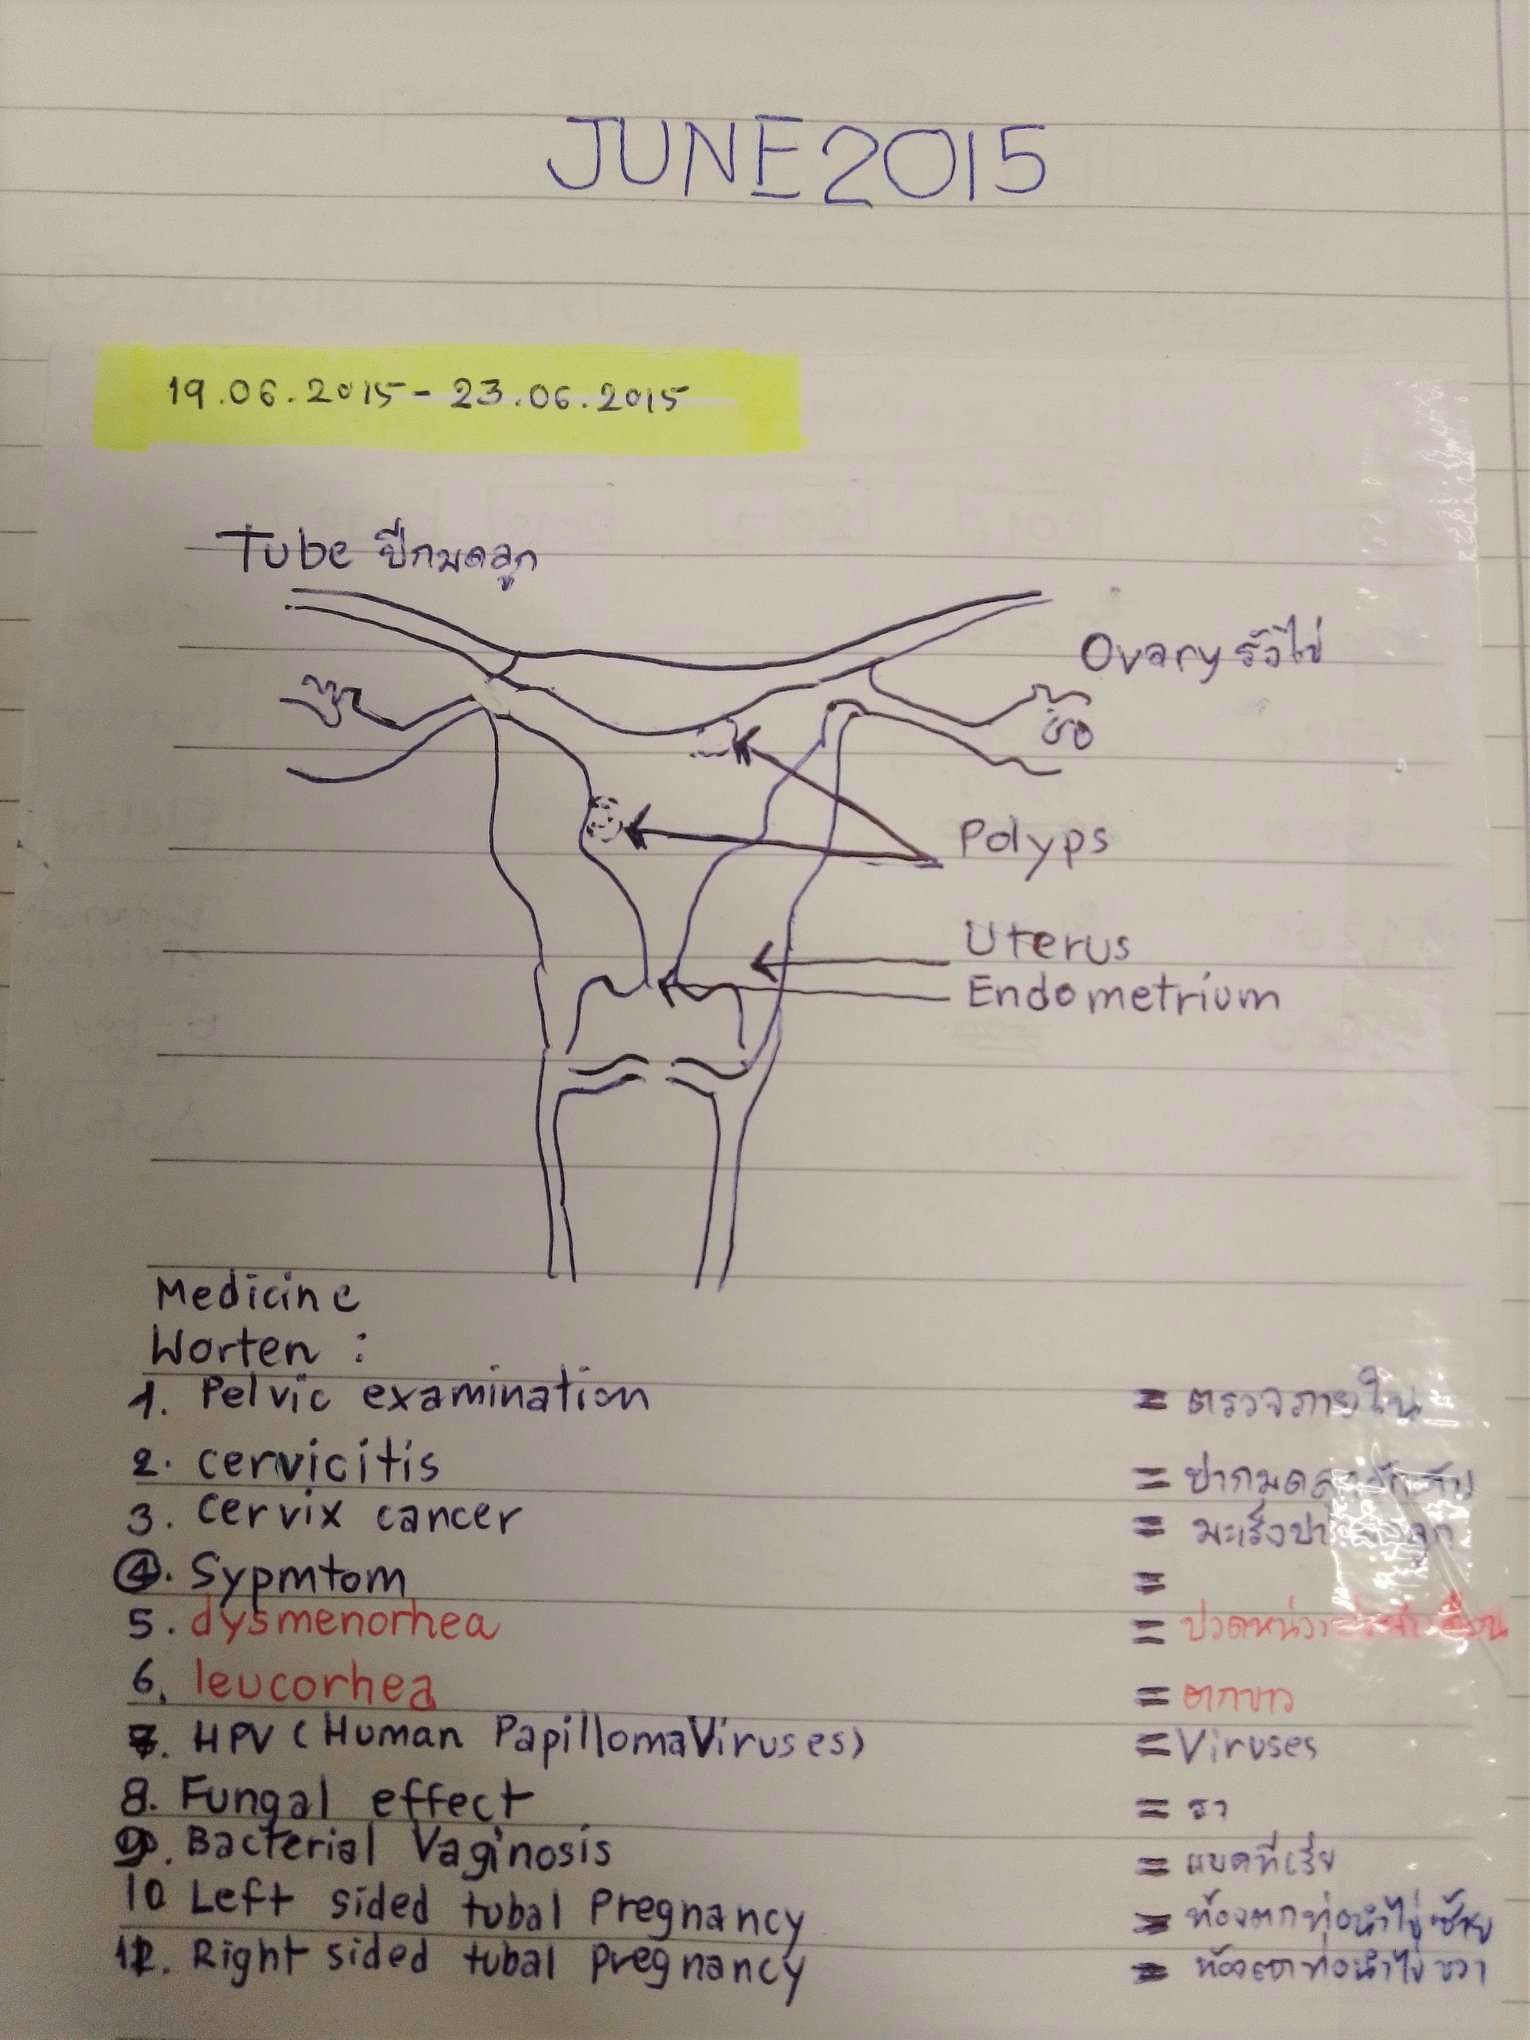 JUNE 2015
19.06.2015 - 23.06.2015
Tube ปีกมดลูก
Ovary รังไข่
Polyps
Uterus
Endometrium
Medicine
Worten :
1. Pelvic examination = ตรวจภายใน
2. cervicitis = ปากมดลูก
3. cervix cancer = มะเร็ง
4. Sypmtom =
5. dysmenorhea =
6. leucorhea = ตกขาว
7. HPV (Human PapillomaViruses) = Viruses
8. Fungal effect = รา
9. Bacterial Vaginosis = แบคทีเรีย
10 Left sided tubal Pregnancy = ท้องตกท่อนำไข่ซ้าย
Right sided tubal pregnancy = ท่อนำไข่ ขวา